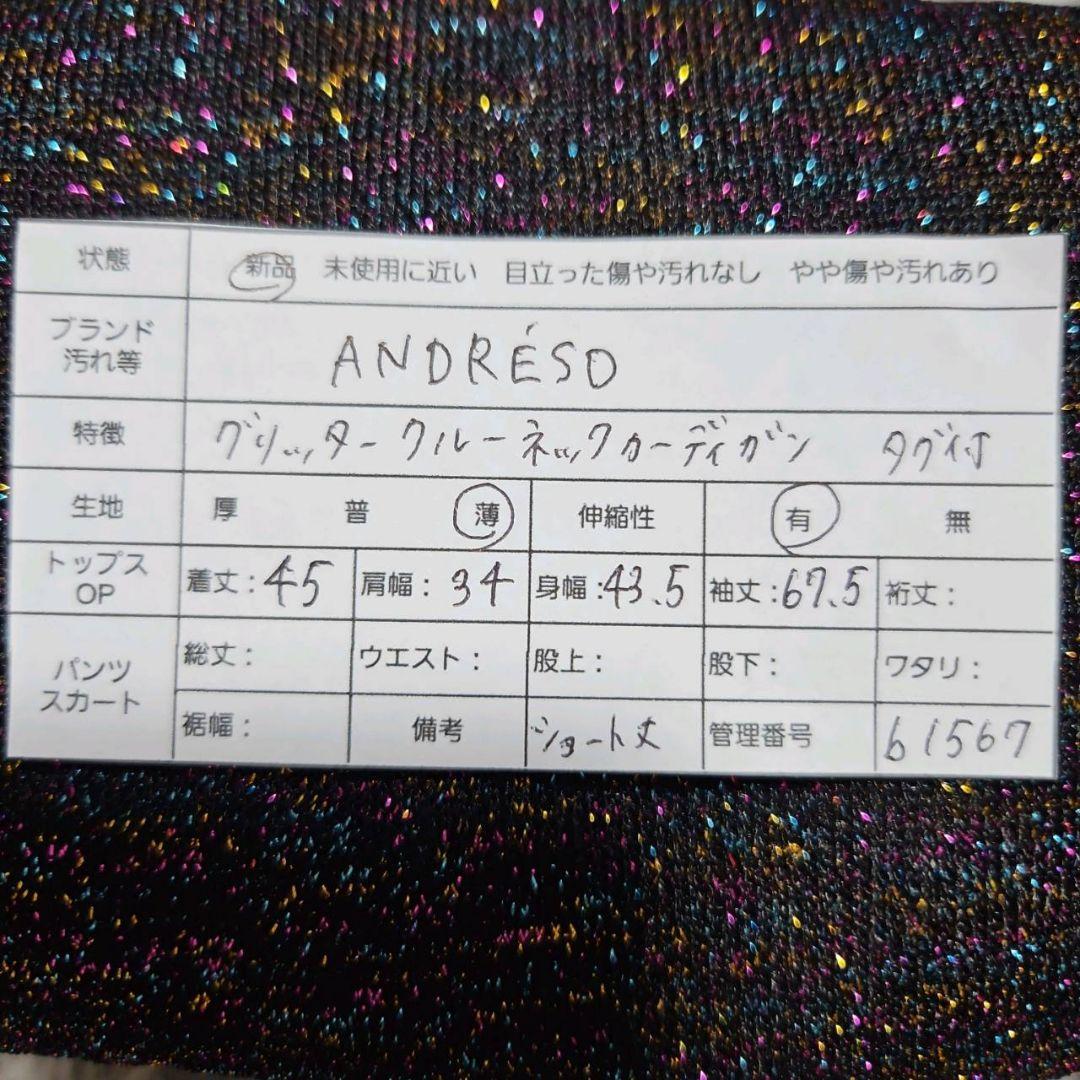 状態 新品 未使用に近い 目立った傷や汚れなし やや傷や汚れあり
ブランド
汚れ等 ANDRÉSD
特徴 グリッタークルーネックカーディガン タグ付
生地 厚 普 薄 伸縮性 有 無
トップス
OP 着丈:45 肩幅:34 身幅:43.5 袖丈:67.5 裄丈:
パンツ
スカート 総丈: ウエスト: 股上: 股下: ワタリ:
裾幅: 備考 ショート丈 管理番号 61567